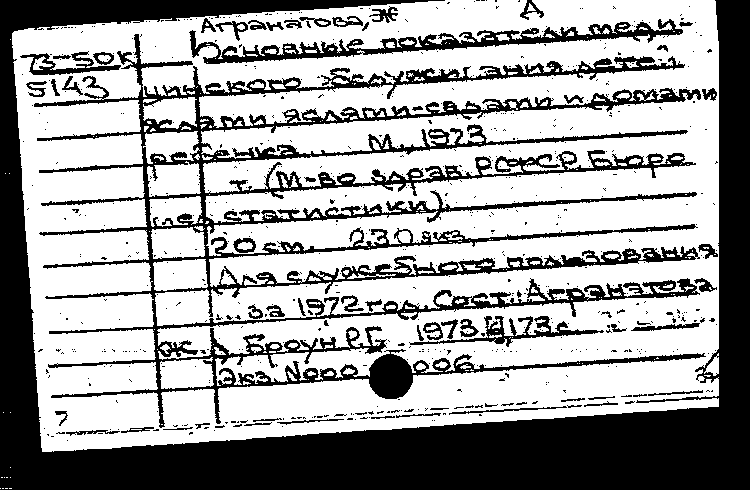 Агранатова, Ж Д
73-50К Основные показатели меди-
5143 цинского обслуживания детей
яслями, яслями-садами и домами
ребенка... М., 1973
т. (М-во здрав. РСФСР. Бюро
мед. статистики).
20 см. 230 экз.
Для служебного пользования
... за 1972 год. Сост.: Агранатова
Ж. Д., Броун Р.Б. 1973. 173 с.
Экз. N000 006.
7